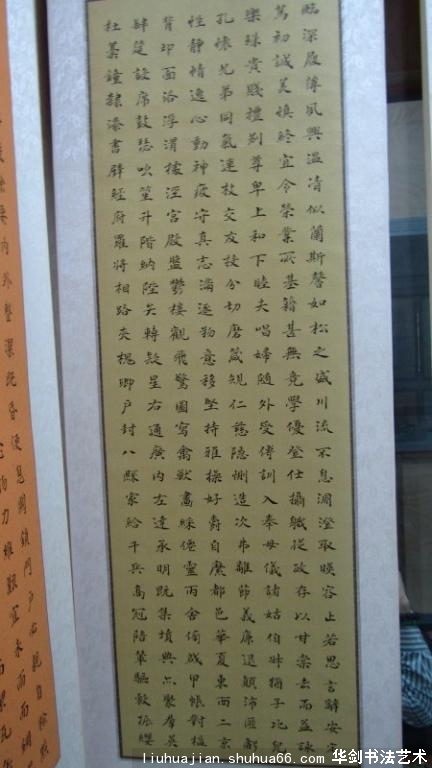 臨深履薄夙興溫凊似蘭斯馨如松之盛川流不息淵澄取暎容止若思言辭安定
篤初誠美慎終宜令榮業所基籍甚無竟學優登仕攝職從政存以甘棠去而益詠
樂殊貴賤禮別尊卑上和下睦夫唱婦隨外受傅訓入奉母儀諸姑伯叔猶子比兒
孔懷兄弟同氣連枝交友投分切磨箴規仁慈隱惻造次弗離節義廉退顛沛匪虧
性靜情逸心動神疲守真志滿逐物意移堅持雅操好爵自縻都邑華夏東西二京
背邙面洛浮渭據涇宮殿盤鬱樓觀飛驚圖寫禽獸畫綵僊靈丙舍傍啟甲帳對楹
肆筵設席鼓瑟吹笙升階納陛弁轉疑星右通廣內左達承明既集墳典亦聚群英
杜稾鍾隸漆書壁經府羅將相路俠槐卿戶封八縣家給千兵高冠陪輦驅轂振纓
要內外整潔既昏便息關鎖門戶必親自檢
物力維艱宜未雨而綢
liuhuajian.shuhua66.com 华剑书法艺术